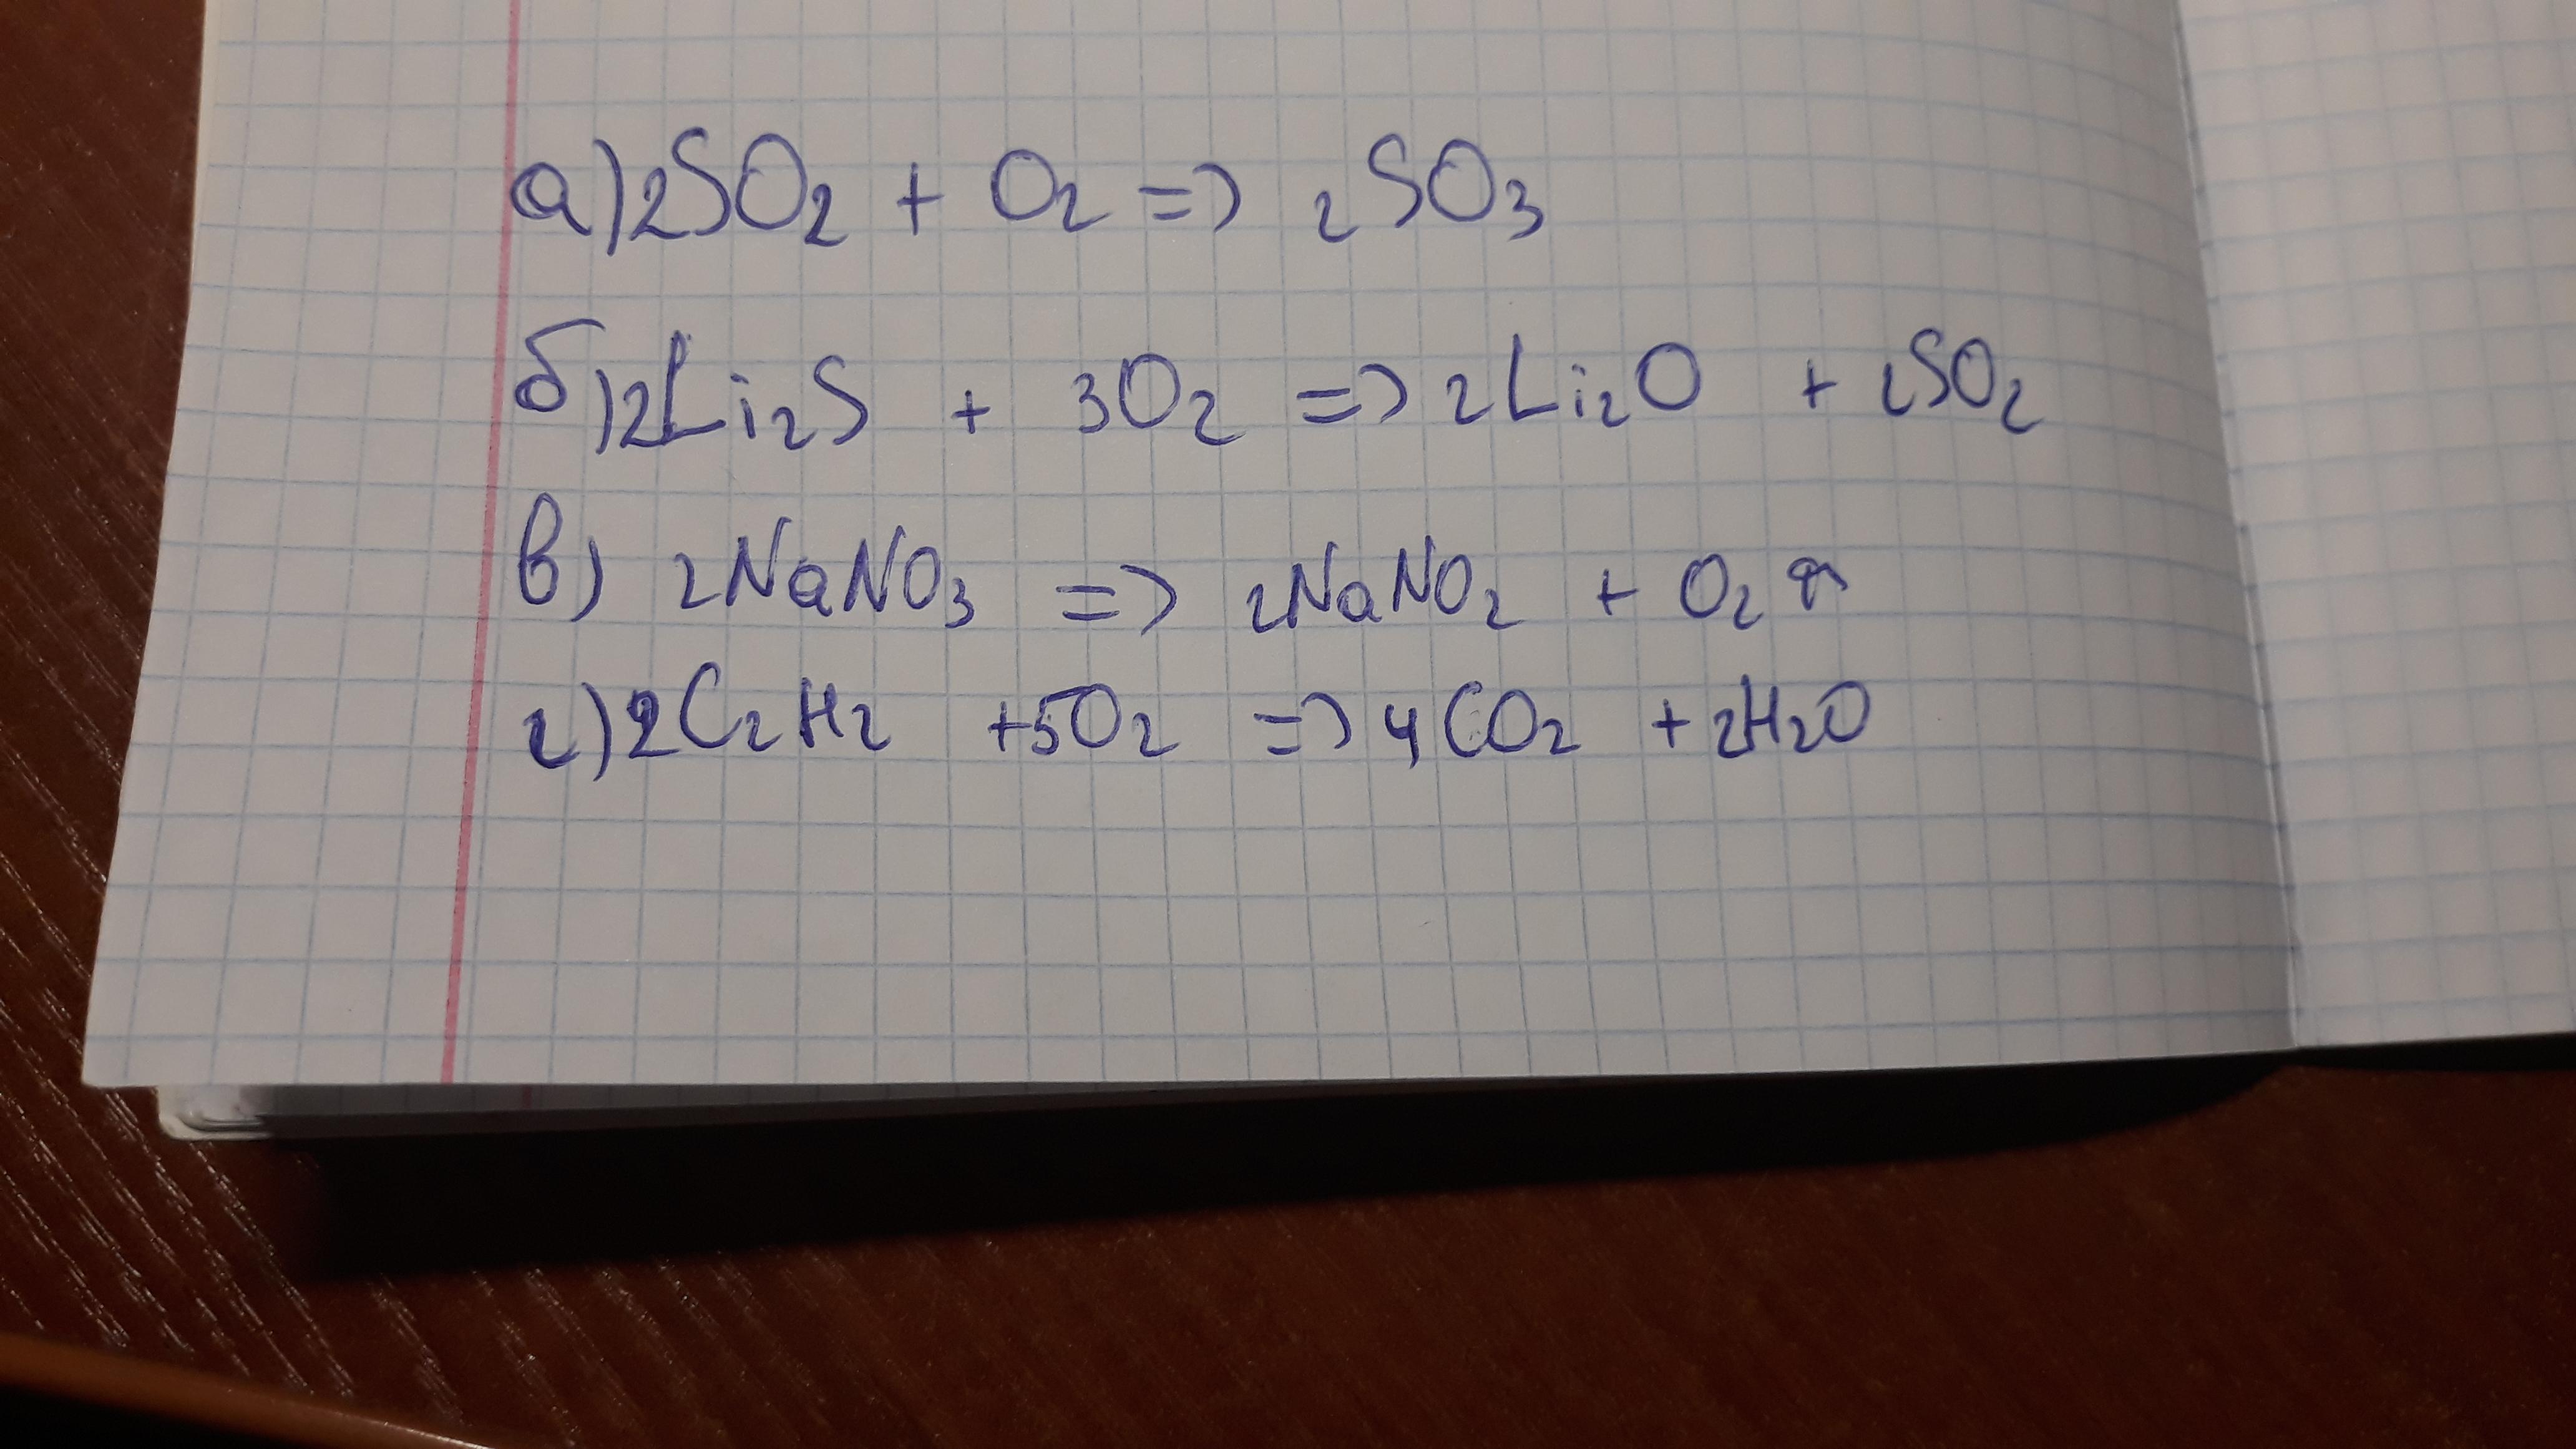 а) 2SO₂ + O₂ => 2SO₃
б) 2Li₂S + 3O₂ => 2Li₂O + 2SO₂
в) 2NaNO₃ => 2NaNO₂ + O₂ ↑
г) 2C₂H₂ + 5O₂ => 4CO₂ + 2H₂O